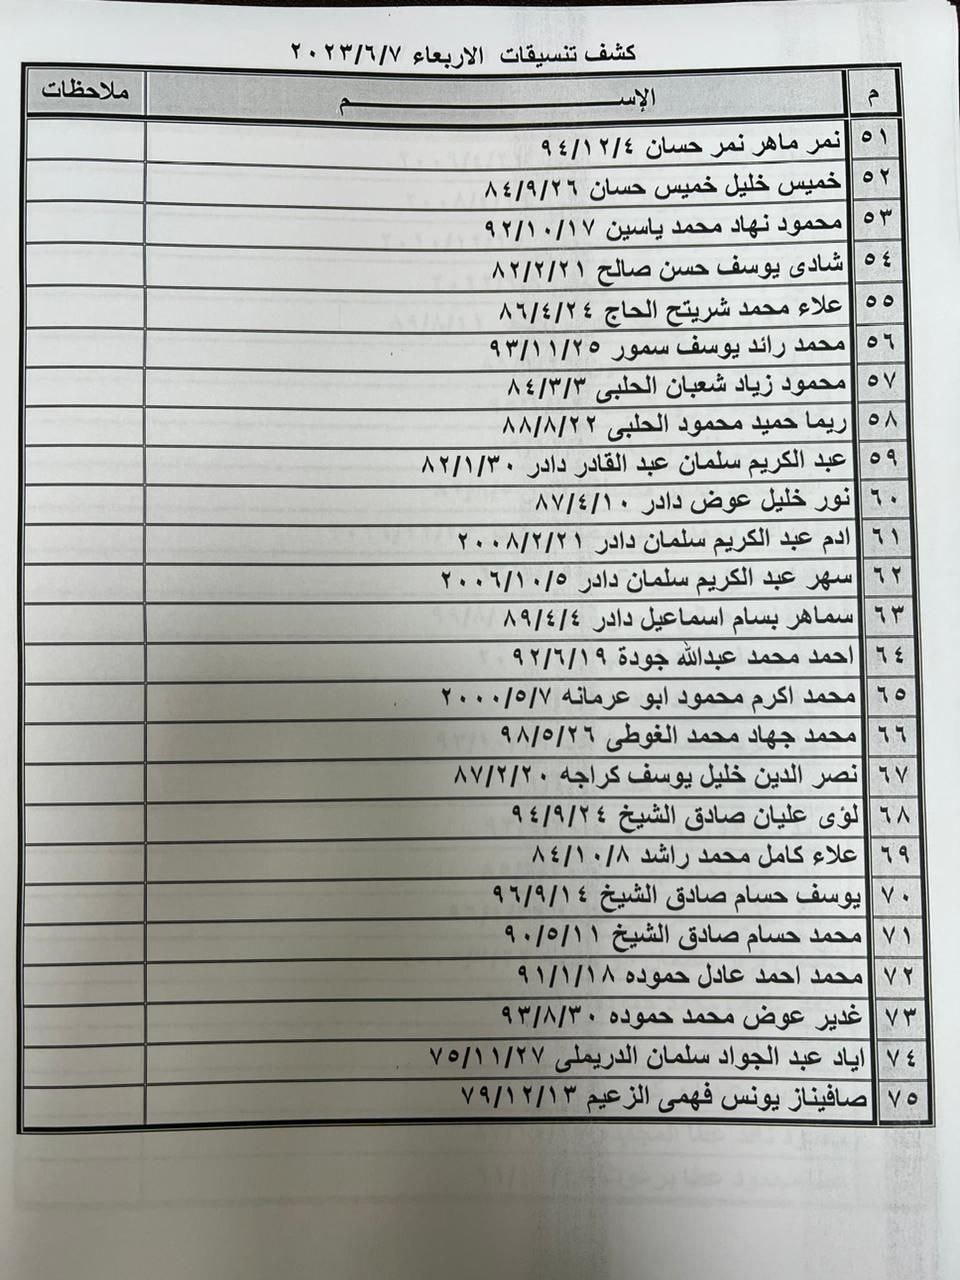 كشف تنسيقات الاربعاء ٢٠٢٣/٦/٧
م الإســـــم ملاحظات
٥١ نمر ماهر نمر حسان ٩٤/١٢/٤
٥٢ خميس خليل خميس حسان ٨٤/٩/٢٦
٥٣ محمود نهاد محمد ياسين ٩٢/١٠/١٧
٥٤ شادى يوسف حسن صالح ٨٢/٢/٢١
٥٥ علاء محمد شريتح الحاج ٨٦/٤/٢٤
٥٦ محمد رائد يوسف سمور ٩٣/١١/٢٥
٥٧ محمود زياد شعبان الحلبى ٨٤/٣/٣
٥٨ ريما حميد محمود الحلبى ٨٨/٨/٢٢
٥٩ عبد الكريم سلمان عبد القادر دادر ٨٢/١/٣٠
٦٠ نور خليل عوض دادر ٨٧/٤/١٠
٦١ ادم عبد الكريم سلمان دادر ٢٠٠٨/٢/٢١
٦٢ سهر عبد الكريم سلمان دادر ٢٠٠٦/١٠/٥
٦٣ سماهر بسام اسماعيل دادر ٨٩/٤/٤
٦٤ احمد محمد عبدالله جودة ٩٢/٦/١٩
٦٥ محمد اكرم محمود ابو عرمانه ٢٠٠٠/٥/٧
٦٦ محمد جهاد محمد الغوطى ٩٨/٥/٢٦
٦٧ نصر الدين خليل يوسف كراجه ٨٧/٢/٢٠
٦٨ لؤى عليان صادق الشيخ ٩٤/٩/٢٤
٦٩ علاء كامل محمد راشد ٨٤/١٠/٨
٧٠ يوسف حسام صادق الشيخ ٩٦/٩/١٤
٧١ محمد حسام صادق الشيخ ٩٠/٥/١١
٧٢ محمد احمد عادل حموده ٩١/١/١٨
٧٣ غدير عوض محمد حموده ٩٣/٨/٣٠
٧٤ اياد عبد الجواد سلمان الدريملى ٧٥/١١/٢٧
٧٥ صافيناز يونس فهمى الزعيم ٧٩/١٢/١٣